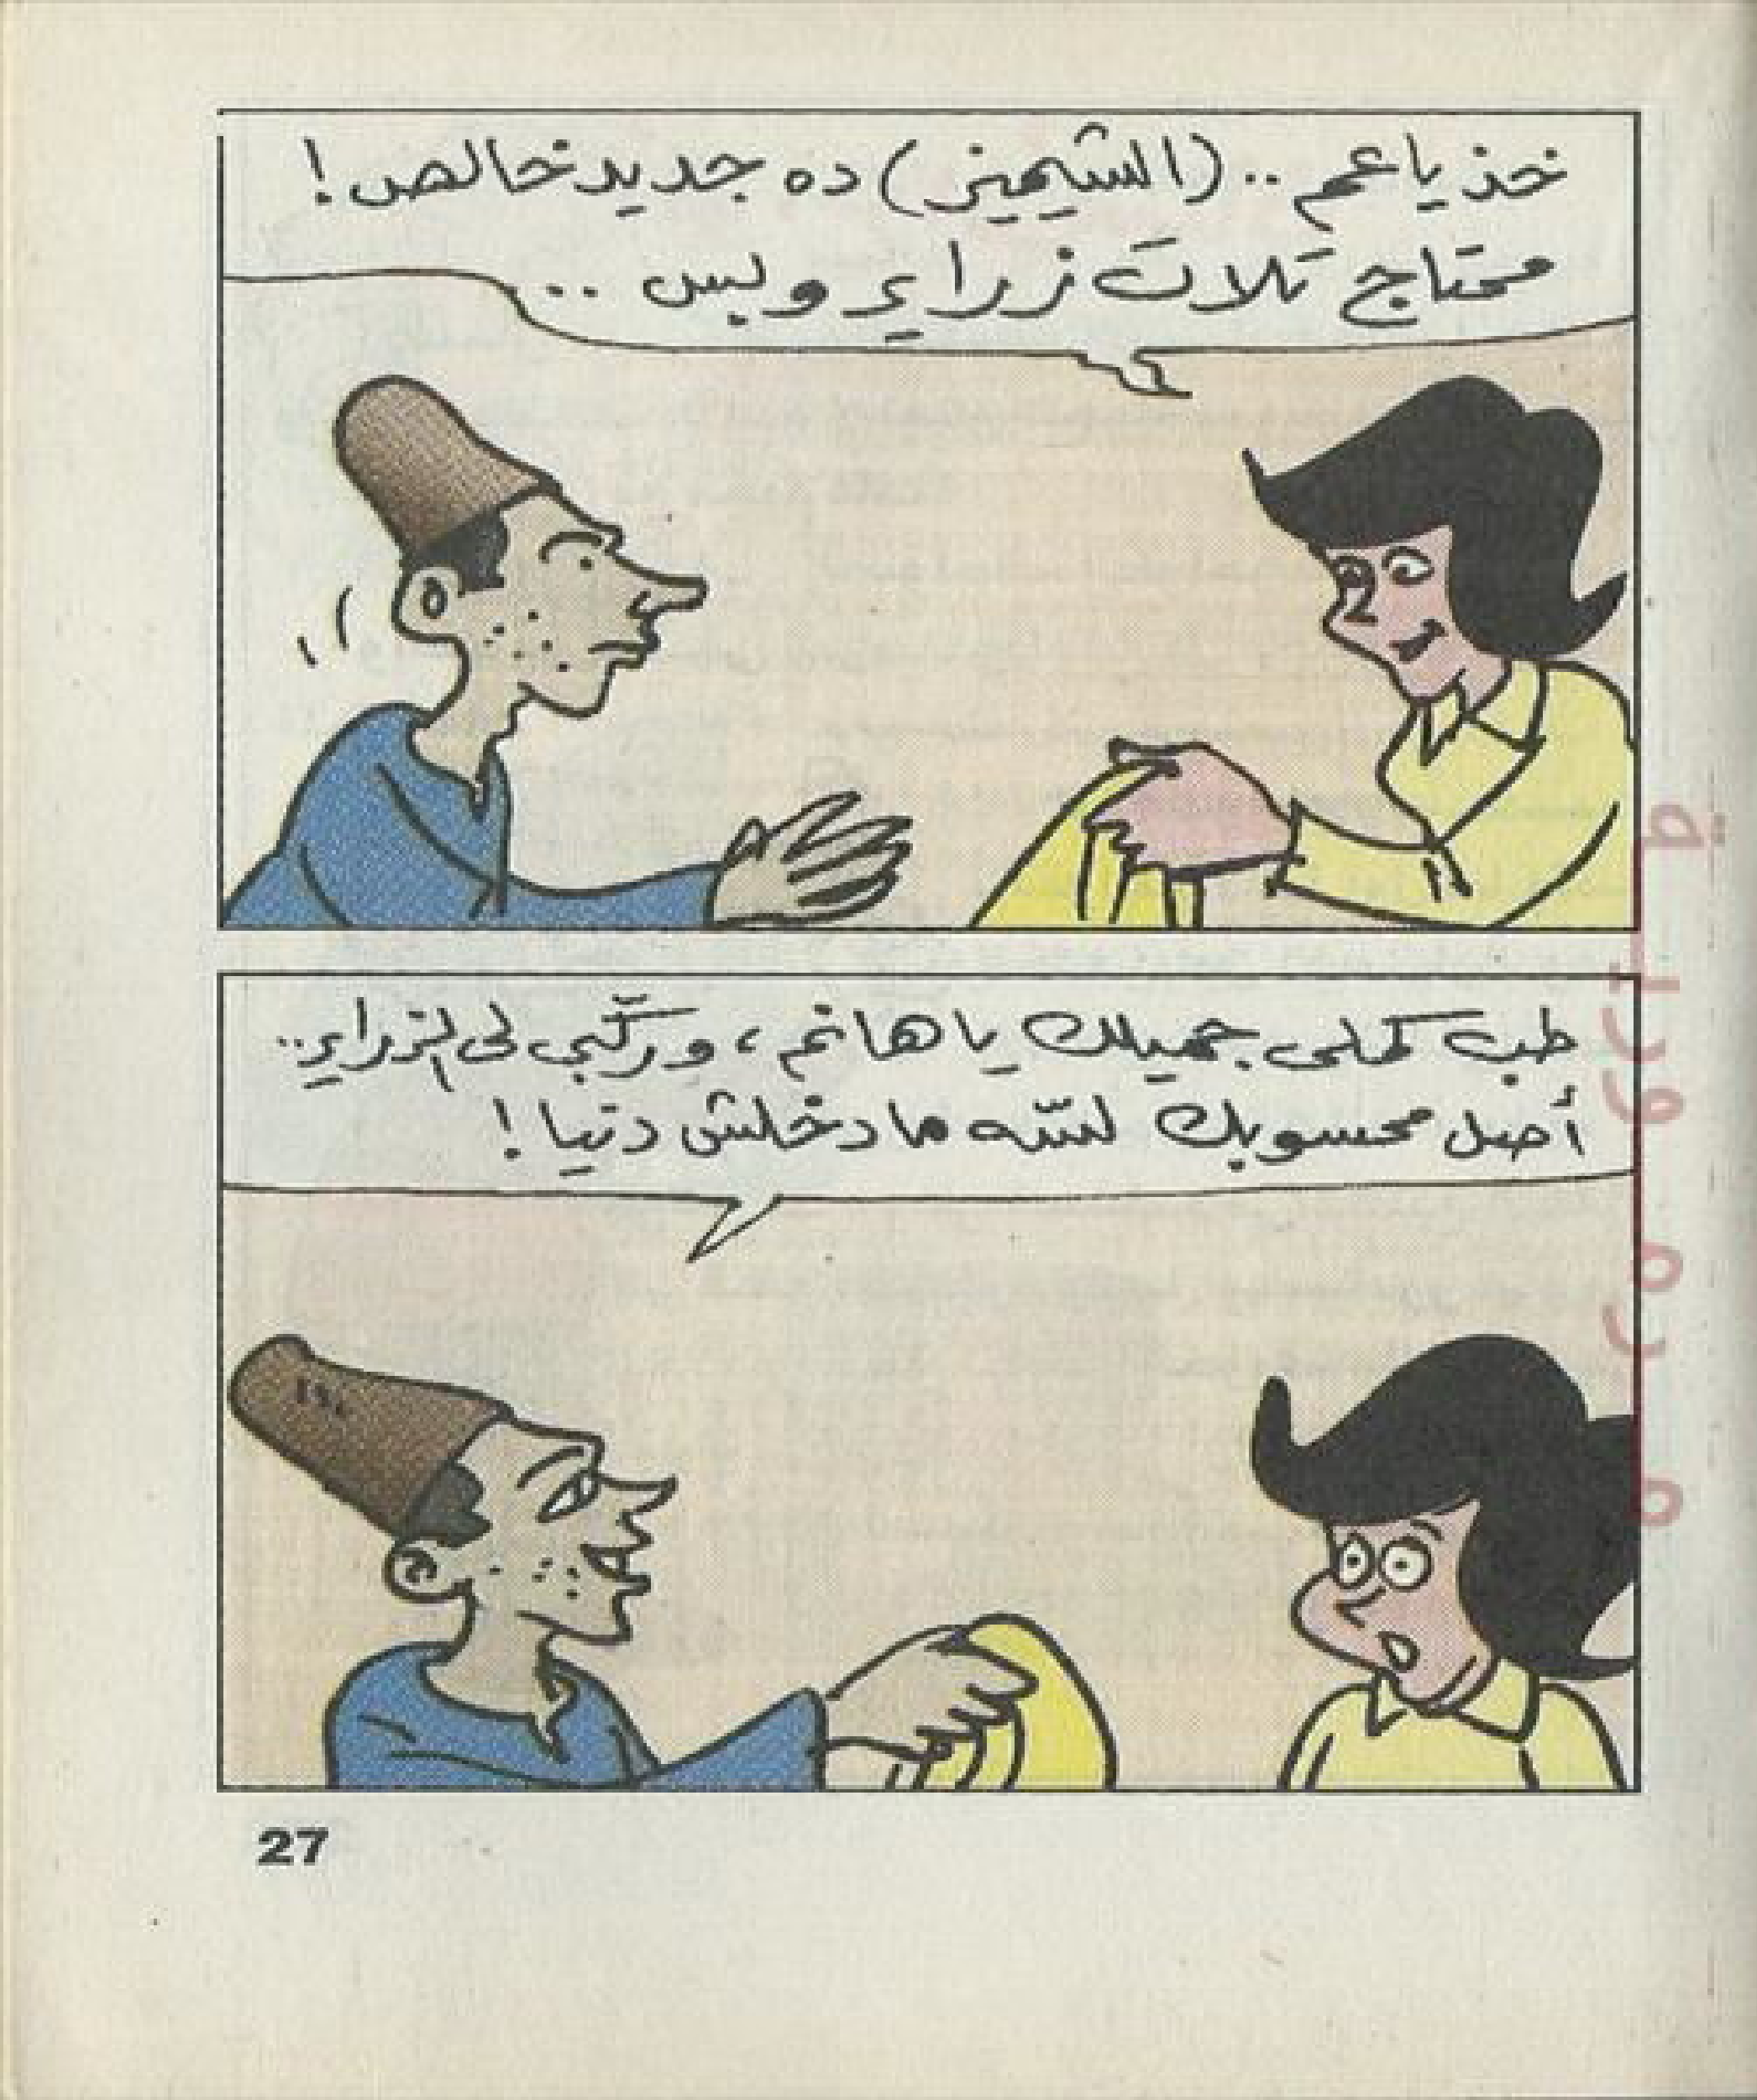 خذ يا عم .. (الشيميز) ده جديد خالص !
محتاج تلات زراير وبس ..
طب كملى جميلك يا هانم ، وركّبى لى الزراير..
أصل محسوبك لسّه ما دخلش دنيا !
27